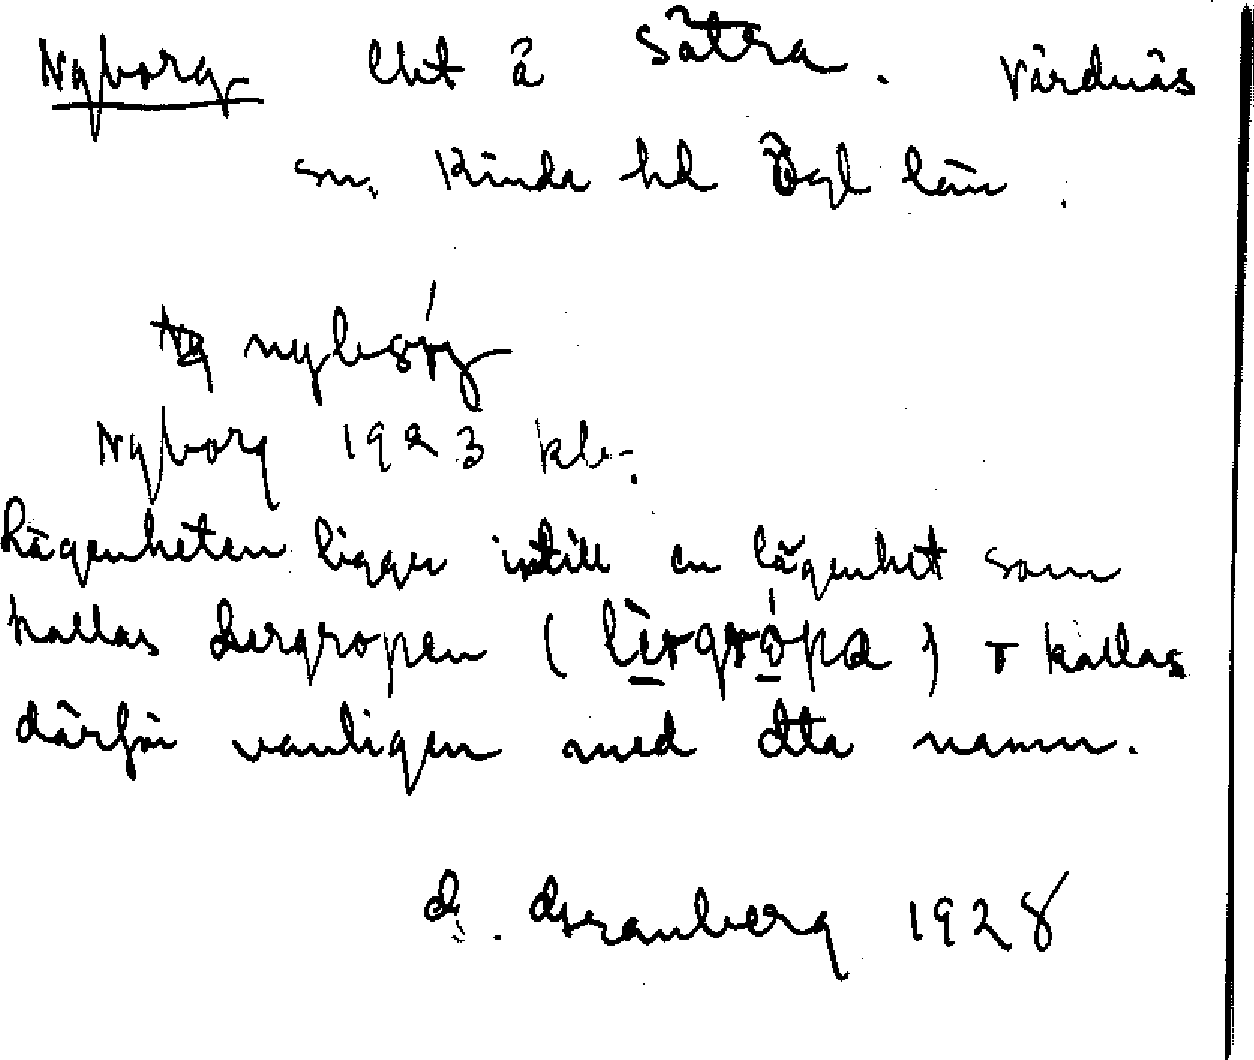 Nyborg lht å Sätra. Vårdnäs
sn. Kinda hd Ögl län.
nybórg
Nyborg 1923 kbr.
Lägenheten ligger intill en lägenhet som
kallas Lergropen (lèrgrópa) + kallas
därför vanligen med dtta namn.
G. Granberg 1928